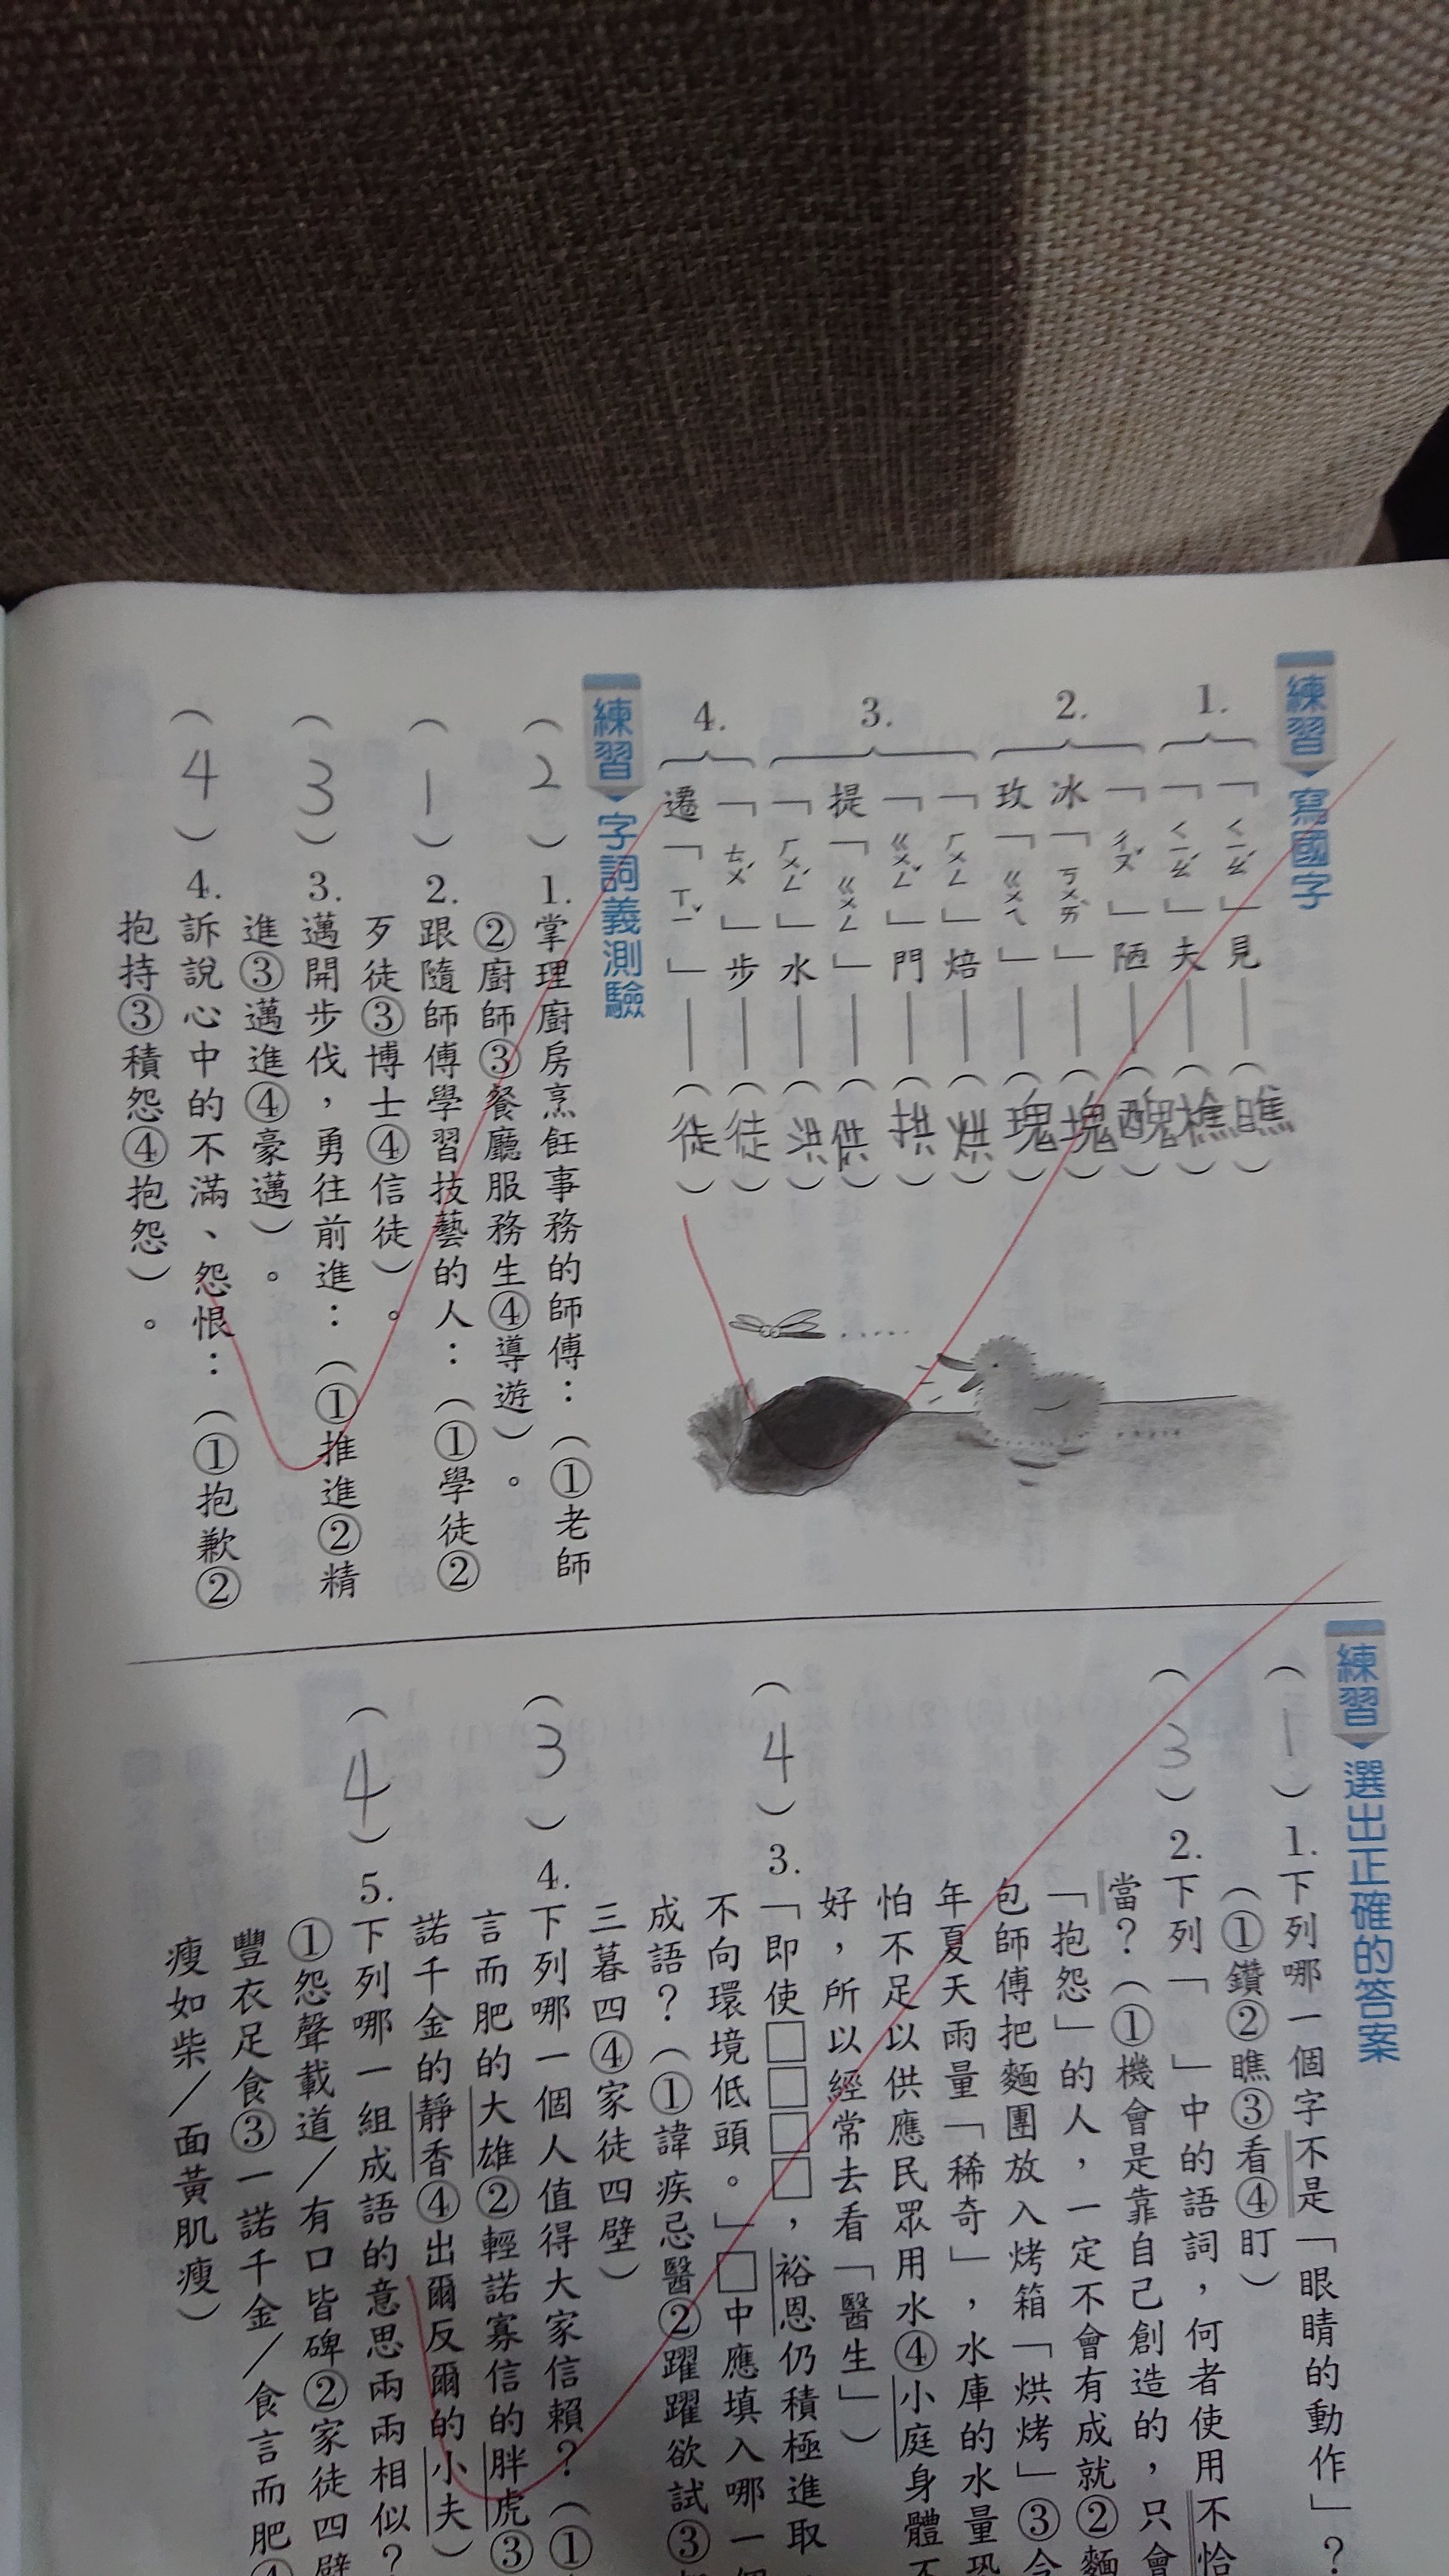 練習 寫國字
1.「ㄑㄧㄠˊ」見——(瞧)
「ㄑㄧㄠˊ」夫——(樵)
2.「ㄔㄡˇ」陋——(醜)
冰「ㄎㄨㄞˋ」——(塊)
玫「ㄍㄨㄟ」——(瑰)
3.「ㄏㄨㄥ」焙——(烘)
「ㄍㄨㄥˇ」門——(拱)
提「ㄍㄨㄥ」——(供)
「ㄏㄨㄥˊ」水——(洪)
4.「ㄊㄨˊ」步——(徒)
遷「ㄒㄧˇ」——(徙)
練習 字詞義測驗
(2)1.掌理廚房烹飪事務的師傅:(①老師
②廚師③餐廳服務生④導遊)。
(1)2.跟隨師傅學習技藝的人:(①學徒②
歹徒③博士④信徒)。
(3)3.邁開步伐,勇往前進:(①推進②精
進③邁進④豪邁)。
(4)4.訴說心中的不滿、怨恨:(①抱歉②
抱持③積怨④抱怨)。
練習 選出正確的答案
(1)1.下列哪一個字不是「眼睛的動作」?
(①鑽②瞧③看④盯)
(3)2.下列「 」中的語詞,何者使用不恰
當?(①機會是靠自己創造的,只會
「抱怨」的人,一定不會有成就②麵
包師傅把麵團放入烤箱「烘烤」③今
年夏天雨量「稀奇」,水庫的水量恐
怕不足以供應民眾用水④小庭身體不
好,所以經常去看「醫生」)
(4)3.「即使□□□□,裕恩仍積極進取
不向環境低頭。」□中應填入哪一個
成語?(①諱疾忌醫②躍躍欲試③
三暮四④家徒四壁)
(3)4.下列哪一個人值得大家信賴?(①
言而肥的大雄②輕諾寡信的胖虎③
諾千金的靜香④出爾反爾的小夫)
(4)5.下列哪一組成語的意思兩兩相似?
①怨聲載道/有口皆碑②家徒四壁
豐衣足食③一諾千金/食言而肥④
瘦如柴/面黃肌瘦)